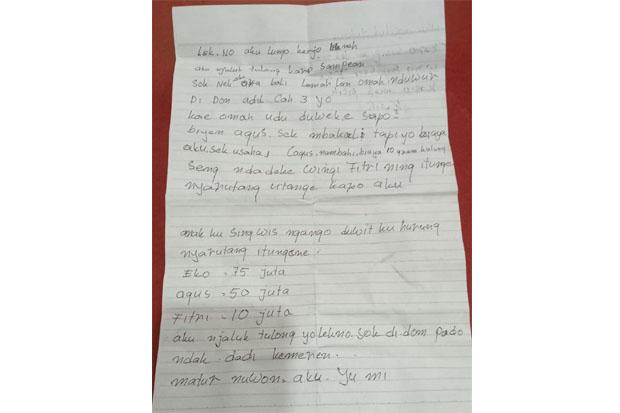 Lek. NO aku lungo kerjo
aku njaluk tulung karo sampean
Sok Nek aku ora bali Lemah lan omah nduwur
Di Dom adil Cah 3 yo
kae omah udu duweke sopo-
biyen agus. sek mbakali tapi yo biaya
aku. sek usaha, (agus. nambahi. biaya 10 gram kalung
Seng ndadeke wingi Fitri ning itunge
nyarutang utange karo aku
anak ku sing wis ngango duwit ku hurung
nyarutang itungene.
Eko = 75 juta
agus = 50 juta
Fitri = 10 juta
aku njaluk tulong yo lekno. Sok di. dom podo
ndak. dadi kemeren..
matur nuwon. aku. Yu mi